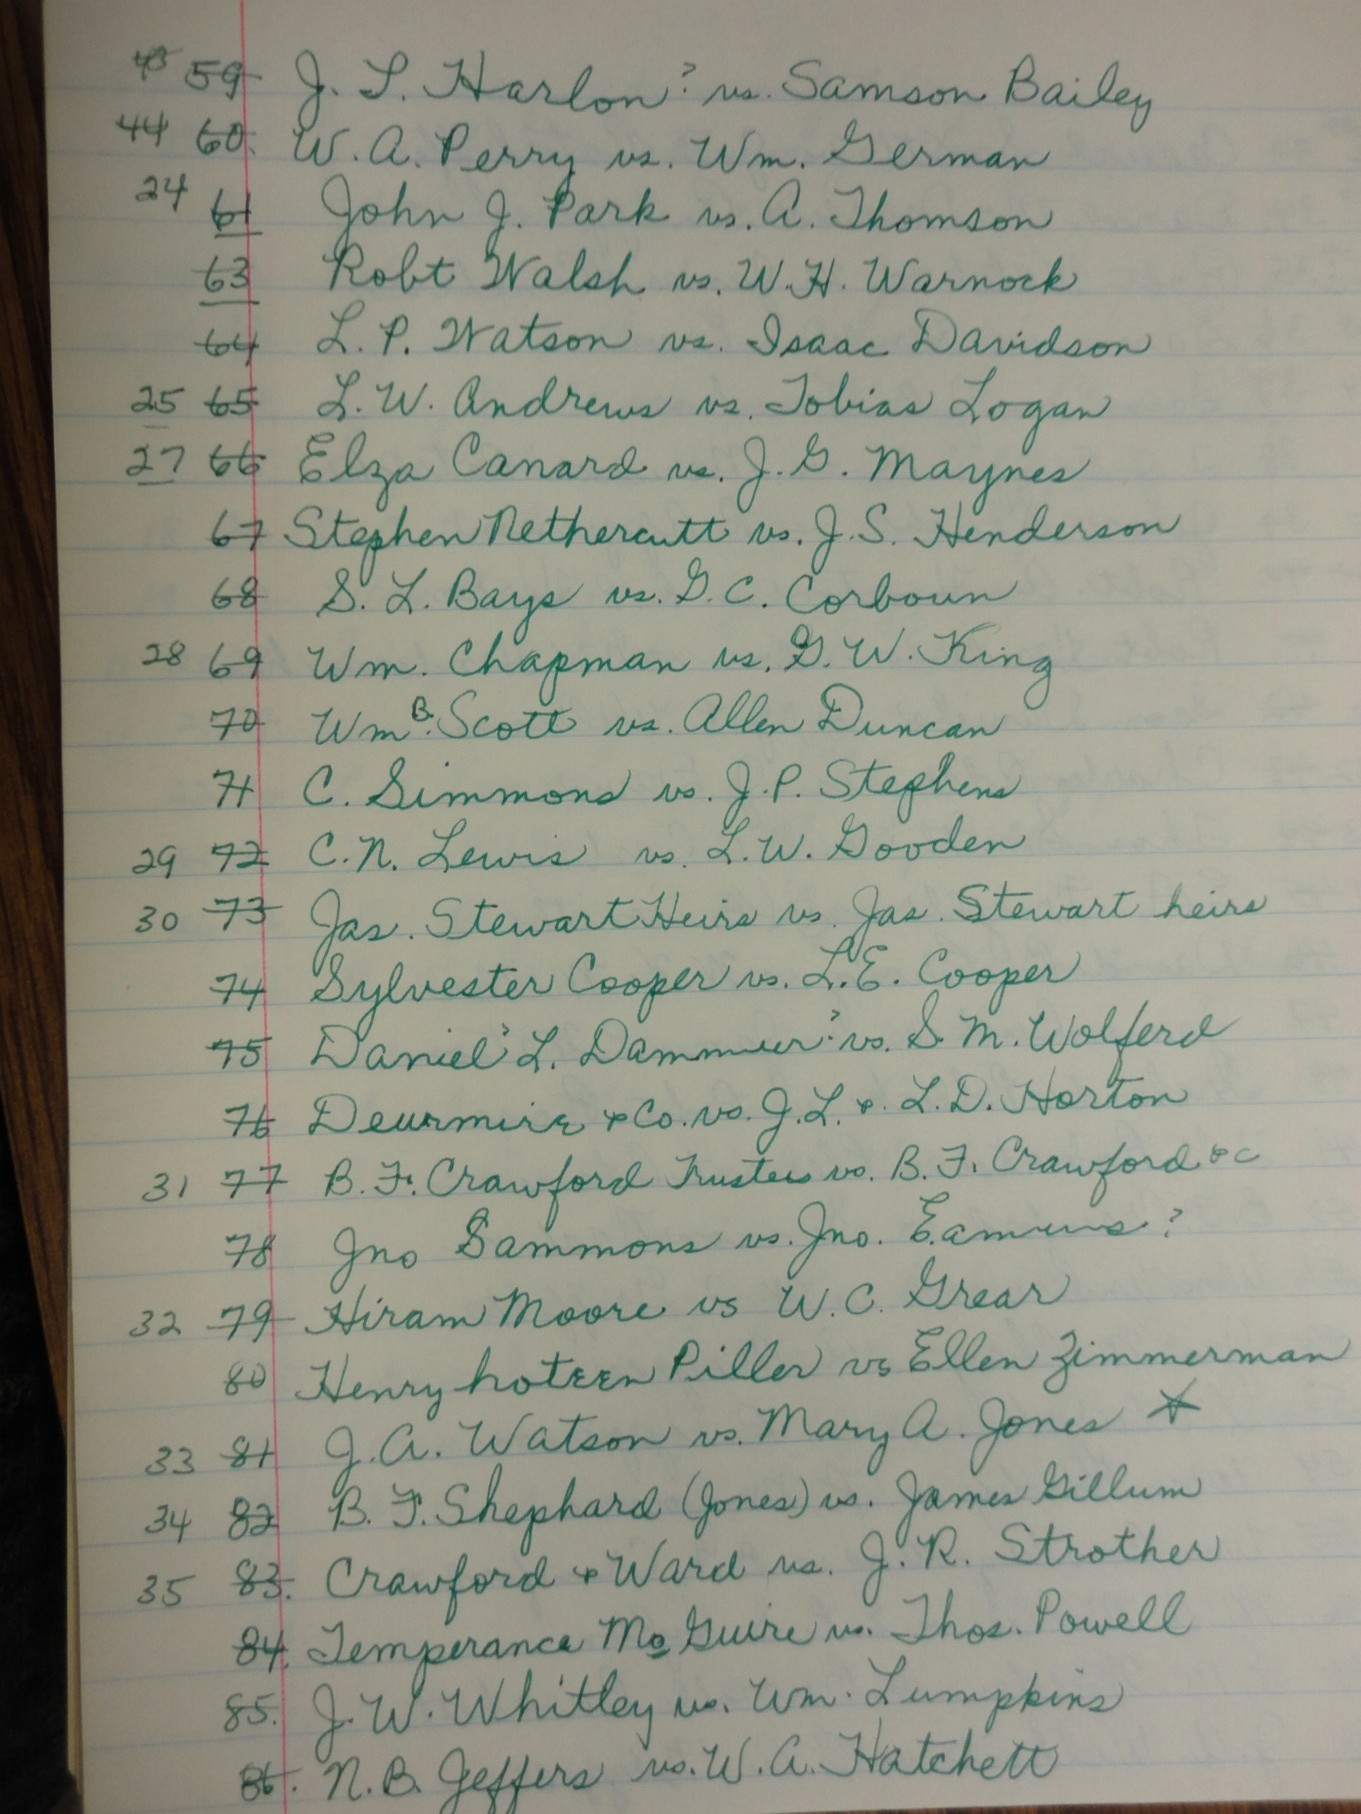 43 59 J. L. Harlon? vs. Samson Bailey
44 60. W. A. Perry vs. Wm. German
24 61 John J. Park vs. A. Thomson
63 Robt Walsh vs. W. H. Warnock
64 L. P. Watson vs. Isaac Davidson
25 65 L. W. Andrews vs. Tobias Logan
27 66 Elza Canard vs. J. G. Maynes
67 Stephen Nethercutt vs. J. S. Henderson
68 S. L. Bays vs. G. C. Corboun
28 69 Wm. Chapman vs. G. W. King
70 Wm B. Scott vs. Allen Duncan
71 C. Simmons vs. J. P. Stephens
29 72 C. N. Lewis vs. L. W. Gooden
30 73 Jas. Stewart Heirs vs. Jas. Stewart heirs
74 Sylvester Cooper vs. L. E. Cooper
75 Daniel? L. Dammier? vs. S. M. Wolferd
76 Deurmire & Co. vs. J. L. & L. D. Horton
31 77 B. F. Crawford Trustees vs. B. F. Crawford &c
78 Jno Sammons vs. Jno.
32 79 Hiram Moore vs W. C. Grear
80 Henry hoteen Piller vs Ellen Zimmerman
33 81 J. A. Watson vs. Mary A. Jones
34 82 B. F. Shephard (Jones) vs. James Gillum
35 83. Crawford & Ward vs. J. R. Strother
84. Temperance McGuire vs. Thos. Powell
85. J. W. Whitley vs. Wm. Lumpkins
86. N. B. Jeffers vs. W. A. Hatchett